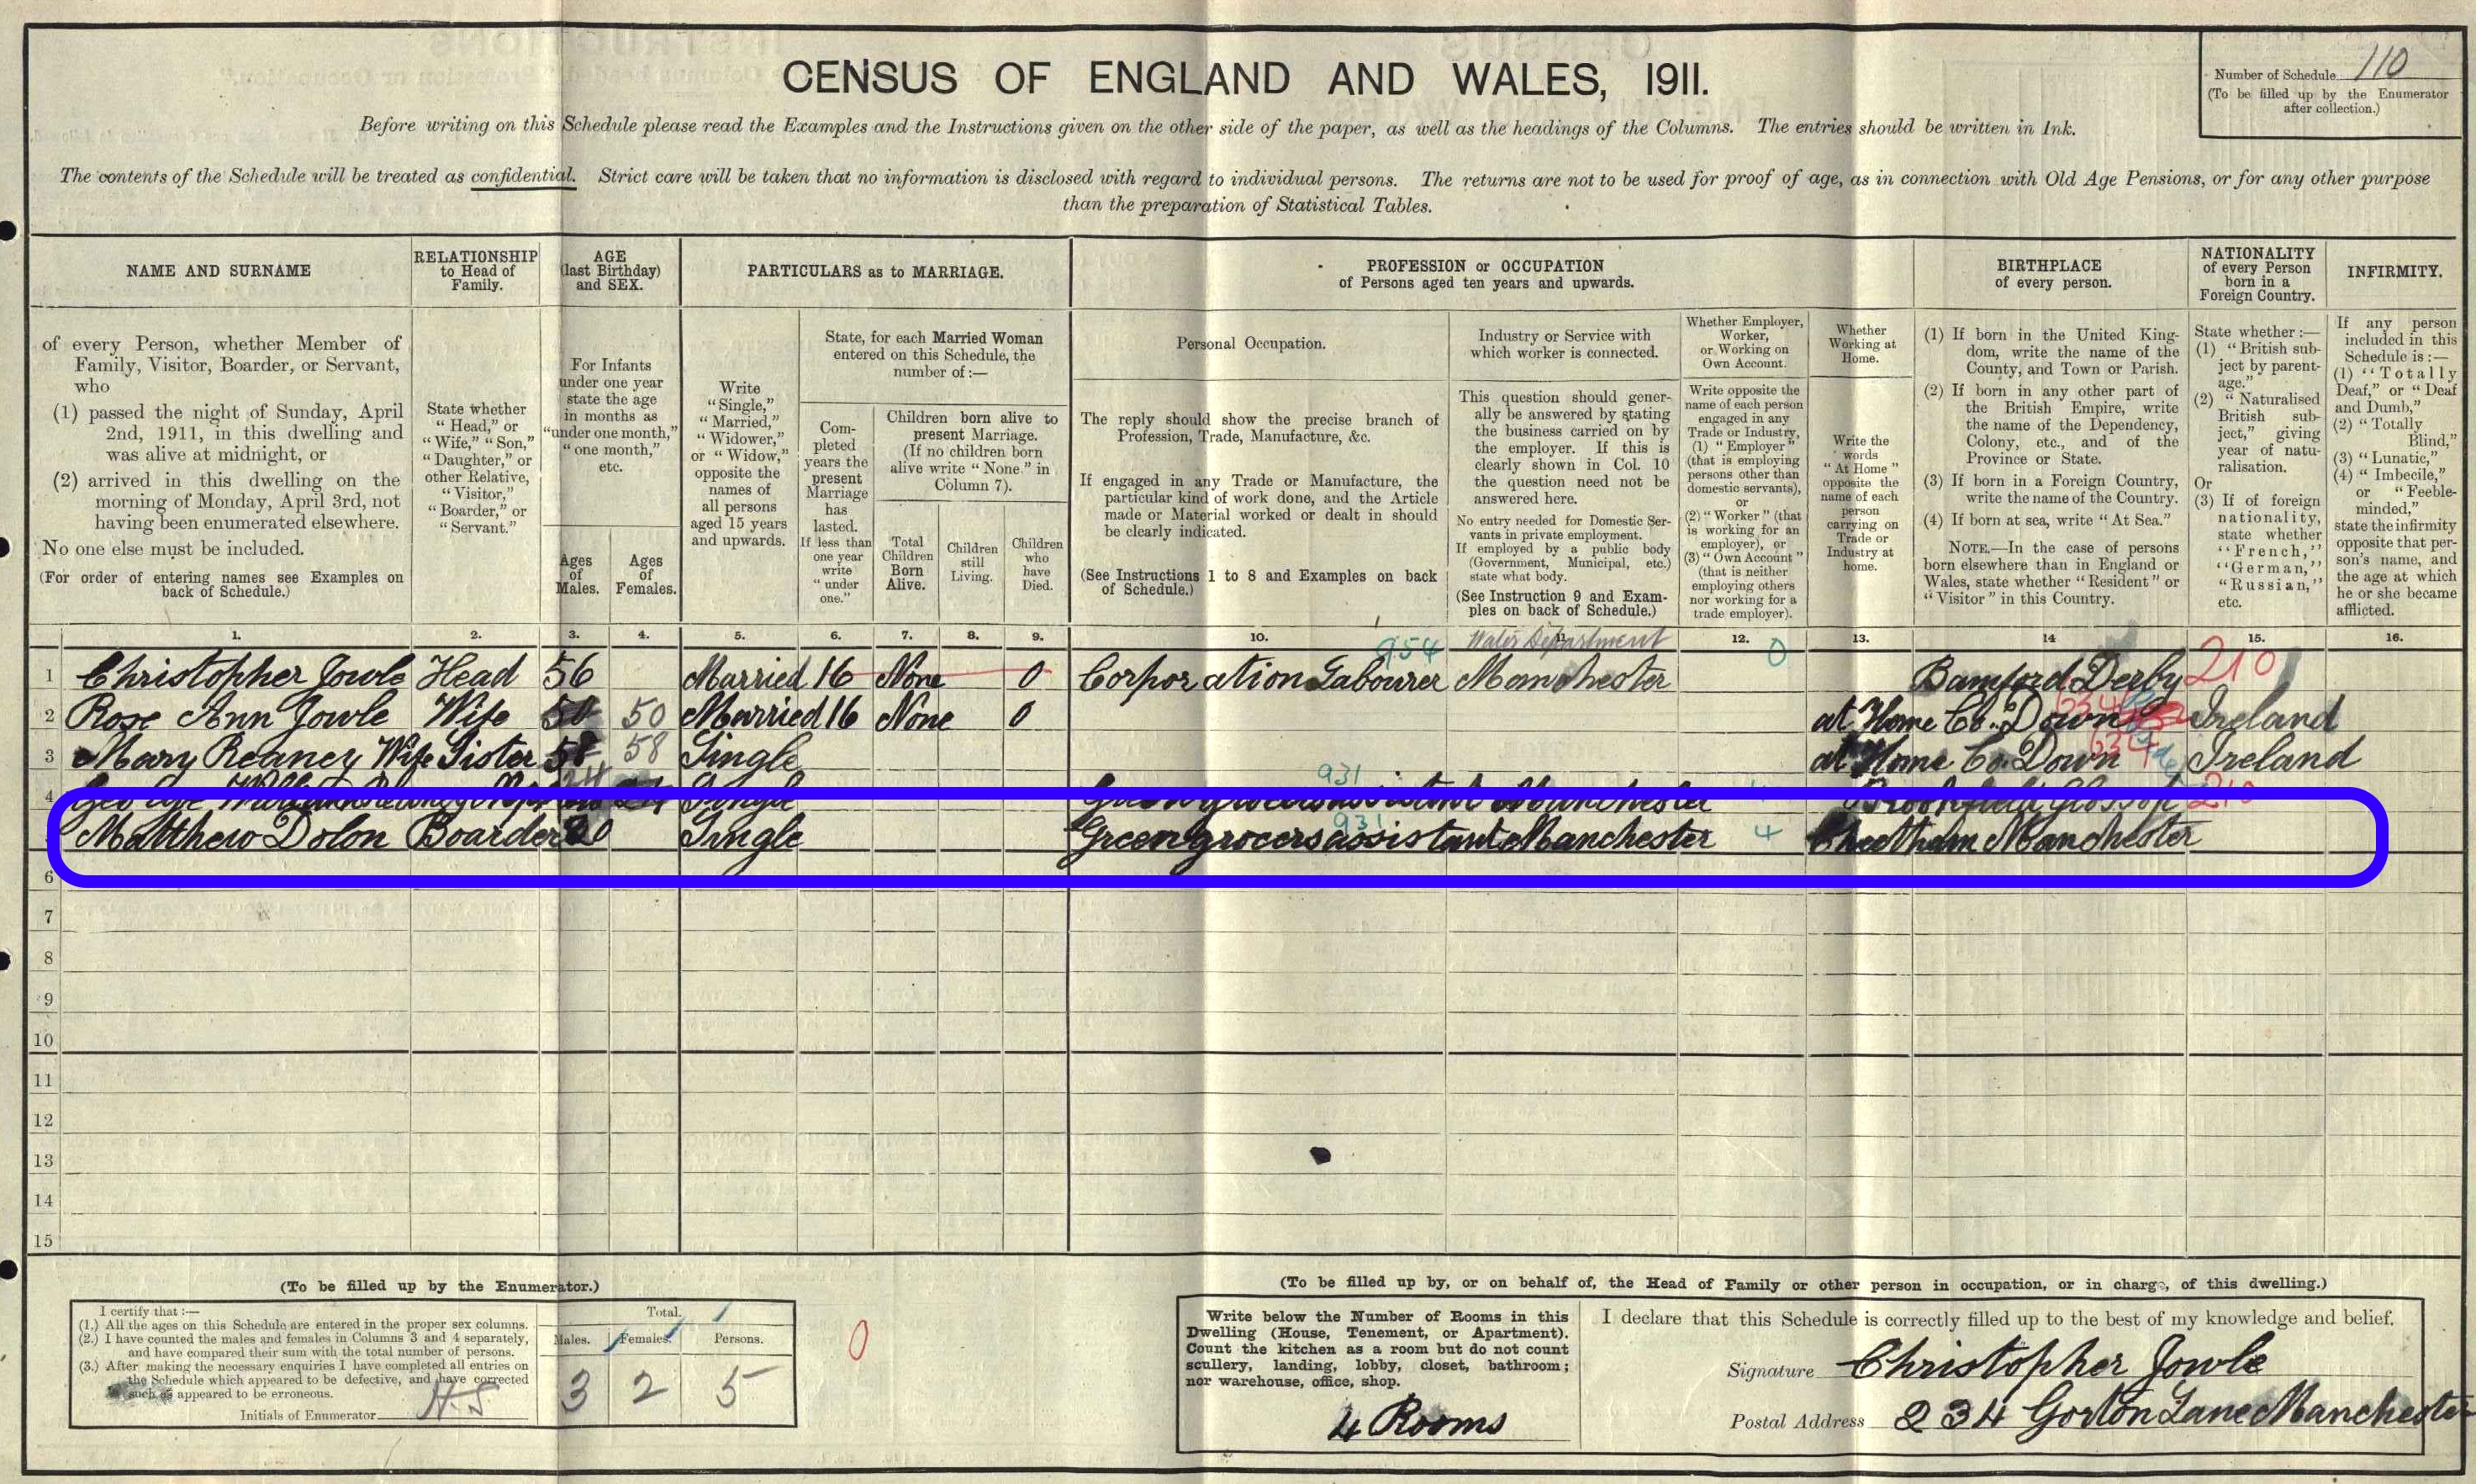 CENSUS OF ENGLAND AND WALES, 1911.
Number of Schedule 110
(To be filled up by the Enumerator
after collection.)
Before writing on this Schedule please read the Examples and the Instructions given on the other side of the paper, as well as the headings of the Columns. The entries should be written in Ink.
The contents of the Schedule will be treated as confidential. Strict care will be taken that no information is disclosed with regard to individual persons. The returns are not to be used for proof of age, as in connection with Old Age Pensions, or for any other purpose
than the preparation of Statistical Tables.
NAME AND SURNAME
of every Person, whether Member of
Family, Visitor, Boarder, or Servant,
who
(1) passed the night of Sunday, April
2nd, 1911, in this dwelling and
was alive at midnight, or
(2) arrived in this dwelling on the
morning of Monday, April 3rd, not
having been enumerated elsewhere.
No one else must be included.
(For order of entering names see Examples on
back of Schedule.)
RELATIONSHIP
to Head of
Family.
State whether
"Head," or
"Wife," "Son,"
"Daughter," or
other Relative,
"Visitor,"
"Boarder," or
"Servant."
AGE
(last Birthday)
and SEX.
For Infants
under one year
state the age
in months as
"under one month,"
"one month,"
etc.
Ages
of
Males.
Ages
of
Females.
PARTICULARS as to MARRIAGE.
Write
"Single,"
"Married,"
"Widower,"
or "Widow,"
opposite the
names of
all persons
aged 15 years
and upwards.
State, for each Married Woman
entered on this Schedule, the
number of:—
Com-
pleted
years the
present
Marriage
has
lasted.
If less than
one year
write
"under
one."
Children born alive to
present Marriage.
(If no children born
alive write "None." in
Column 7).
Total
Children
Born
Alive.
Children
still
Living.
Children
who
have
Died.
PROFESSION or OCCUPATION
of Persons aged ten years and upwards.
Personal Occupation.
The reply should show the precise branch of
Profession, Trade, Manufacture, &c.
If engaged in any Trade or Manufacture, the
particular kind of work done, and the Article
made or Material worked or dealt in should
be clearly indicated.
(See Instructions 1 to 8 and Examples on back
of Schedule.)
Industry or Service with
which worker is connected.
This question should gener-
ally be answered by stating
the business carried on by
the employer. If this is
clearly shown in Col. 10
the question need not be
answered here.
No entry needed for Domestic Ser-
vants in private employment.
If employed by a public body
(Government, Municipal, etc.)
state what body.
(See Instruction 9 and Exam-
ples on back of Schedule.)
Whether Employer,
Worker,
or Working on
Own Account.
Write opposite the
name of each person
engaged in any
Trade or Industry,
(1) "Employer"
(that is employing
persons other than
domestic servants),
or
(2) "Worker" (that
is working for an
employer), or
(3) "Own Account"
(that is neither
employing others
nor working for a
trade employer).
Whether
Working at
Home.
Write the
words
"At Home"
opposite the
name of each
person
carrying on
Trade or
Industry at
home.
BIRTHPLACE
of every person.
(1) If born in the United King-
dom, write the name of the
County, and Town or Parish.
(2) If born in any other part of
the British Empire, write
the name of the Dependency,
Colony, etc., and of the
Province or State.
(3) If born in a Foreign Country,
write the name of the Country.
(4) If born at sea, write "At Sea."
NOTE.—In the case of persons
born elsewhere than in England or
Wales, state whether "Resident" or
"Visitor" in this Country.
NATIONALITY
of every Person
born in a
Foreign Country.
State whether:—
(1) "British sub-
ject by parent-
age."
(2) "Naturalised
British sub-
ject," giving
year of natu-
ralisation.
Or
(3) If of foreign
nationality,
state whether
"French,"
"German,"
"Russian,"
etc.
INFIRMITY.
If any person
included in this
Schedule is:—
(1) "Totally
Deaf," or "Deaf
and Dumb,"
(2) "Totally
Blind,"
(3) "Lunatic,"
(4) "Imbecile,"
or "Feeble-
minded,"
state the infirmity
opposite that per-
son's name, and
the age at which
he or she became
afflicted.
1. 2. 3. 4. 5. 6. 7. 8. 9. 10. 11. 12. 13. 14 15. 16.
954 Water Department 0
1 Christopher Jowle Head 56 Married 16 None 0 Corporation Labourer Manchester Bamford Derby 210
2 Rose Ann Jowle Wife 50 50 Married 16 None 0 at Home Co. Down Ireland
3 Mary Reaney Wife Sister 58 58 Single at Home Co. Down 634 Ireland
931
4 George Single Greengrocers assistant Manchester Brookfield Glossop 210
931
Matthew Dolon Boarder 20 Single Greengrocers assistant Manchester 4 Cheetham Manchester
6
7
8
9
10
11
12
13
14
15
(To be filled up by the Enumerator.)
I certify that:—
(1.) All the ages on this Schedule are entered in the proper sex columns.
(2.) I have counted the males and females in Columns 3 and 4 separately,
and have compared their sum with the total number of persons.
(3.) After making the necessary enquiries I have completed all entries on
the Schedule which appeared to be defective, and have corrected
such as appeared to be erroneous.
Initials of Enumerator H.S
Total.
Males. Females. Persons.
3 2 5
0
(To be filled up by, or on behalf of, the Head of Family or other person in occupation, or in charge, of this dwelling.)
Write below the Number of Rooms in this
Dwelling (House, Tenement, or Apartment).
Count the kitchen as a room but do not count
scullery, landing, lobby, closet, bathroom;
nor warehouse, office, shop.
4 Rooms
I declare that this Schedule is correctly filled up to the best of my knowledge and belief.
Signature Christopher Jowle
Postal Address 234 Gorton Lane Manchester